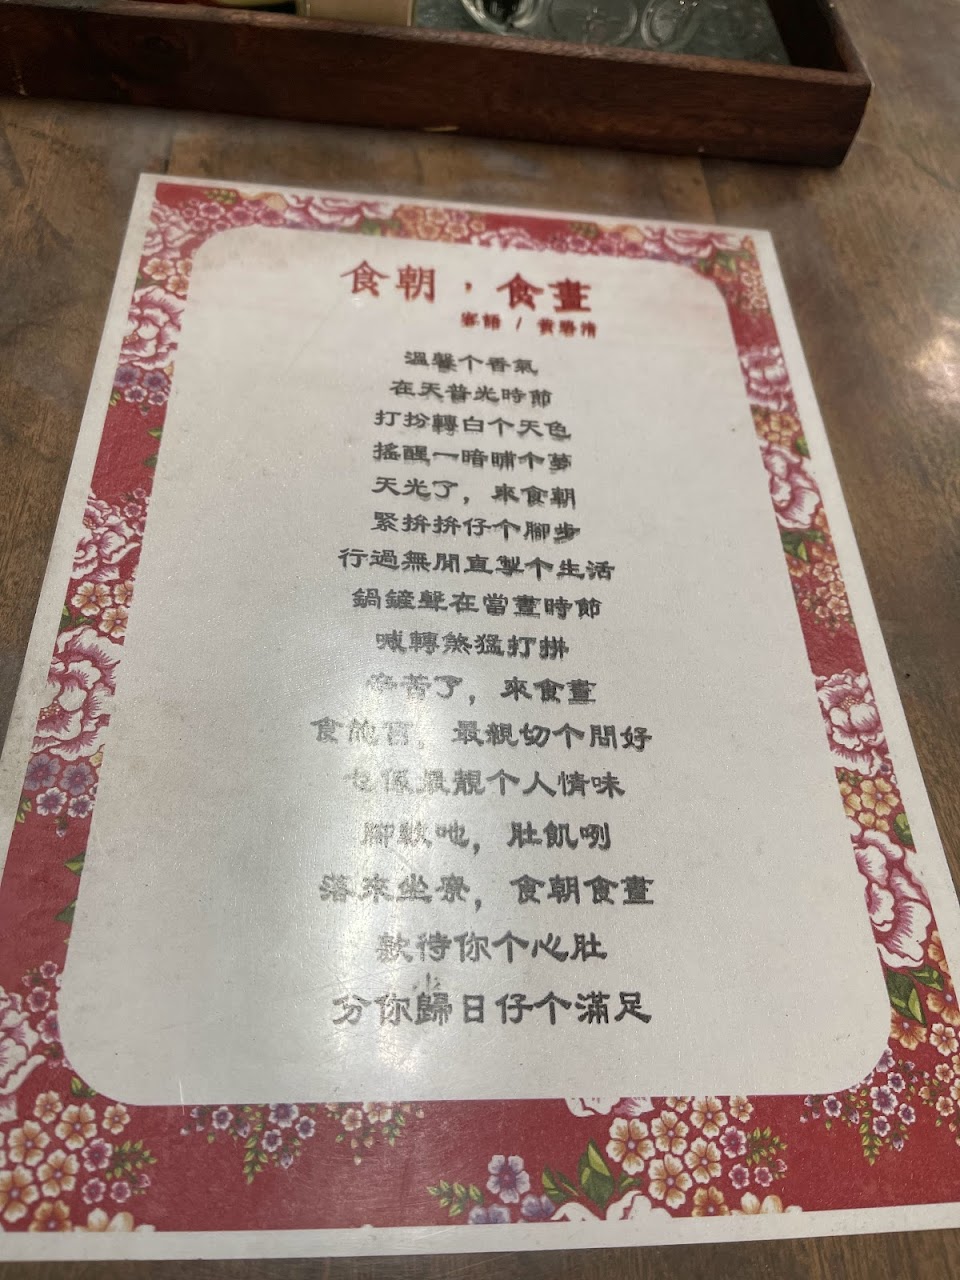 食朝，食晝
客語 / 黃碧清
溫馨个香氣
在天普光時節
打扮轉白个天色
搖醒一暗晡个夢
天光了，來食朝
緊拚拚仔个腳步
行過無閒直掣个生活
鍋鏟聲在當晝時節
喊轉煞猛打拼
辛苦了，來食晝
食飽言，最親切个問好
乜係最靚个人情味
腳軟吔，肚飢咧
落來坐尞，食朝食晝
款待你个心肚
分你歸日仔个滿足